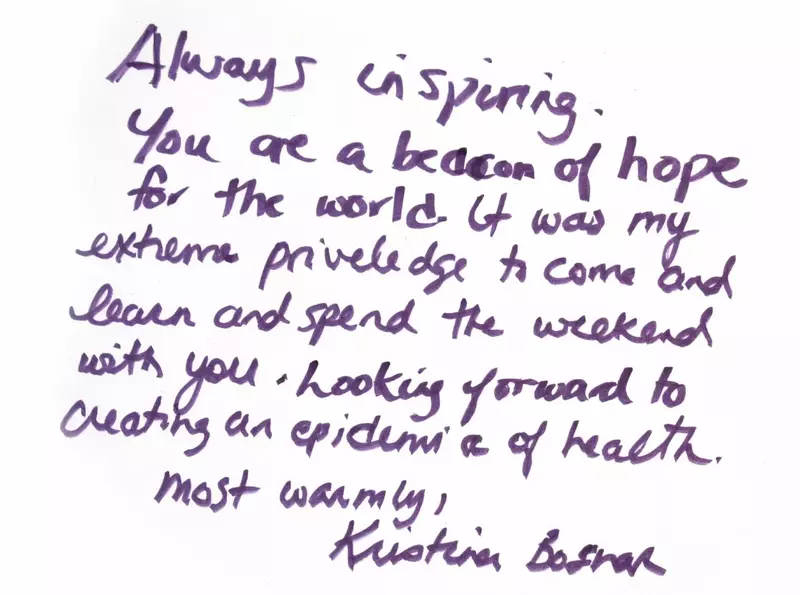 Always inspiring.
You are a beacon of hope
for the world. It was my
extreme priveledge to come and
learn and spend the weekend
with you. Looking forward to
creating an epidemic of health.
most warmly,
Kristina Bosnar